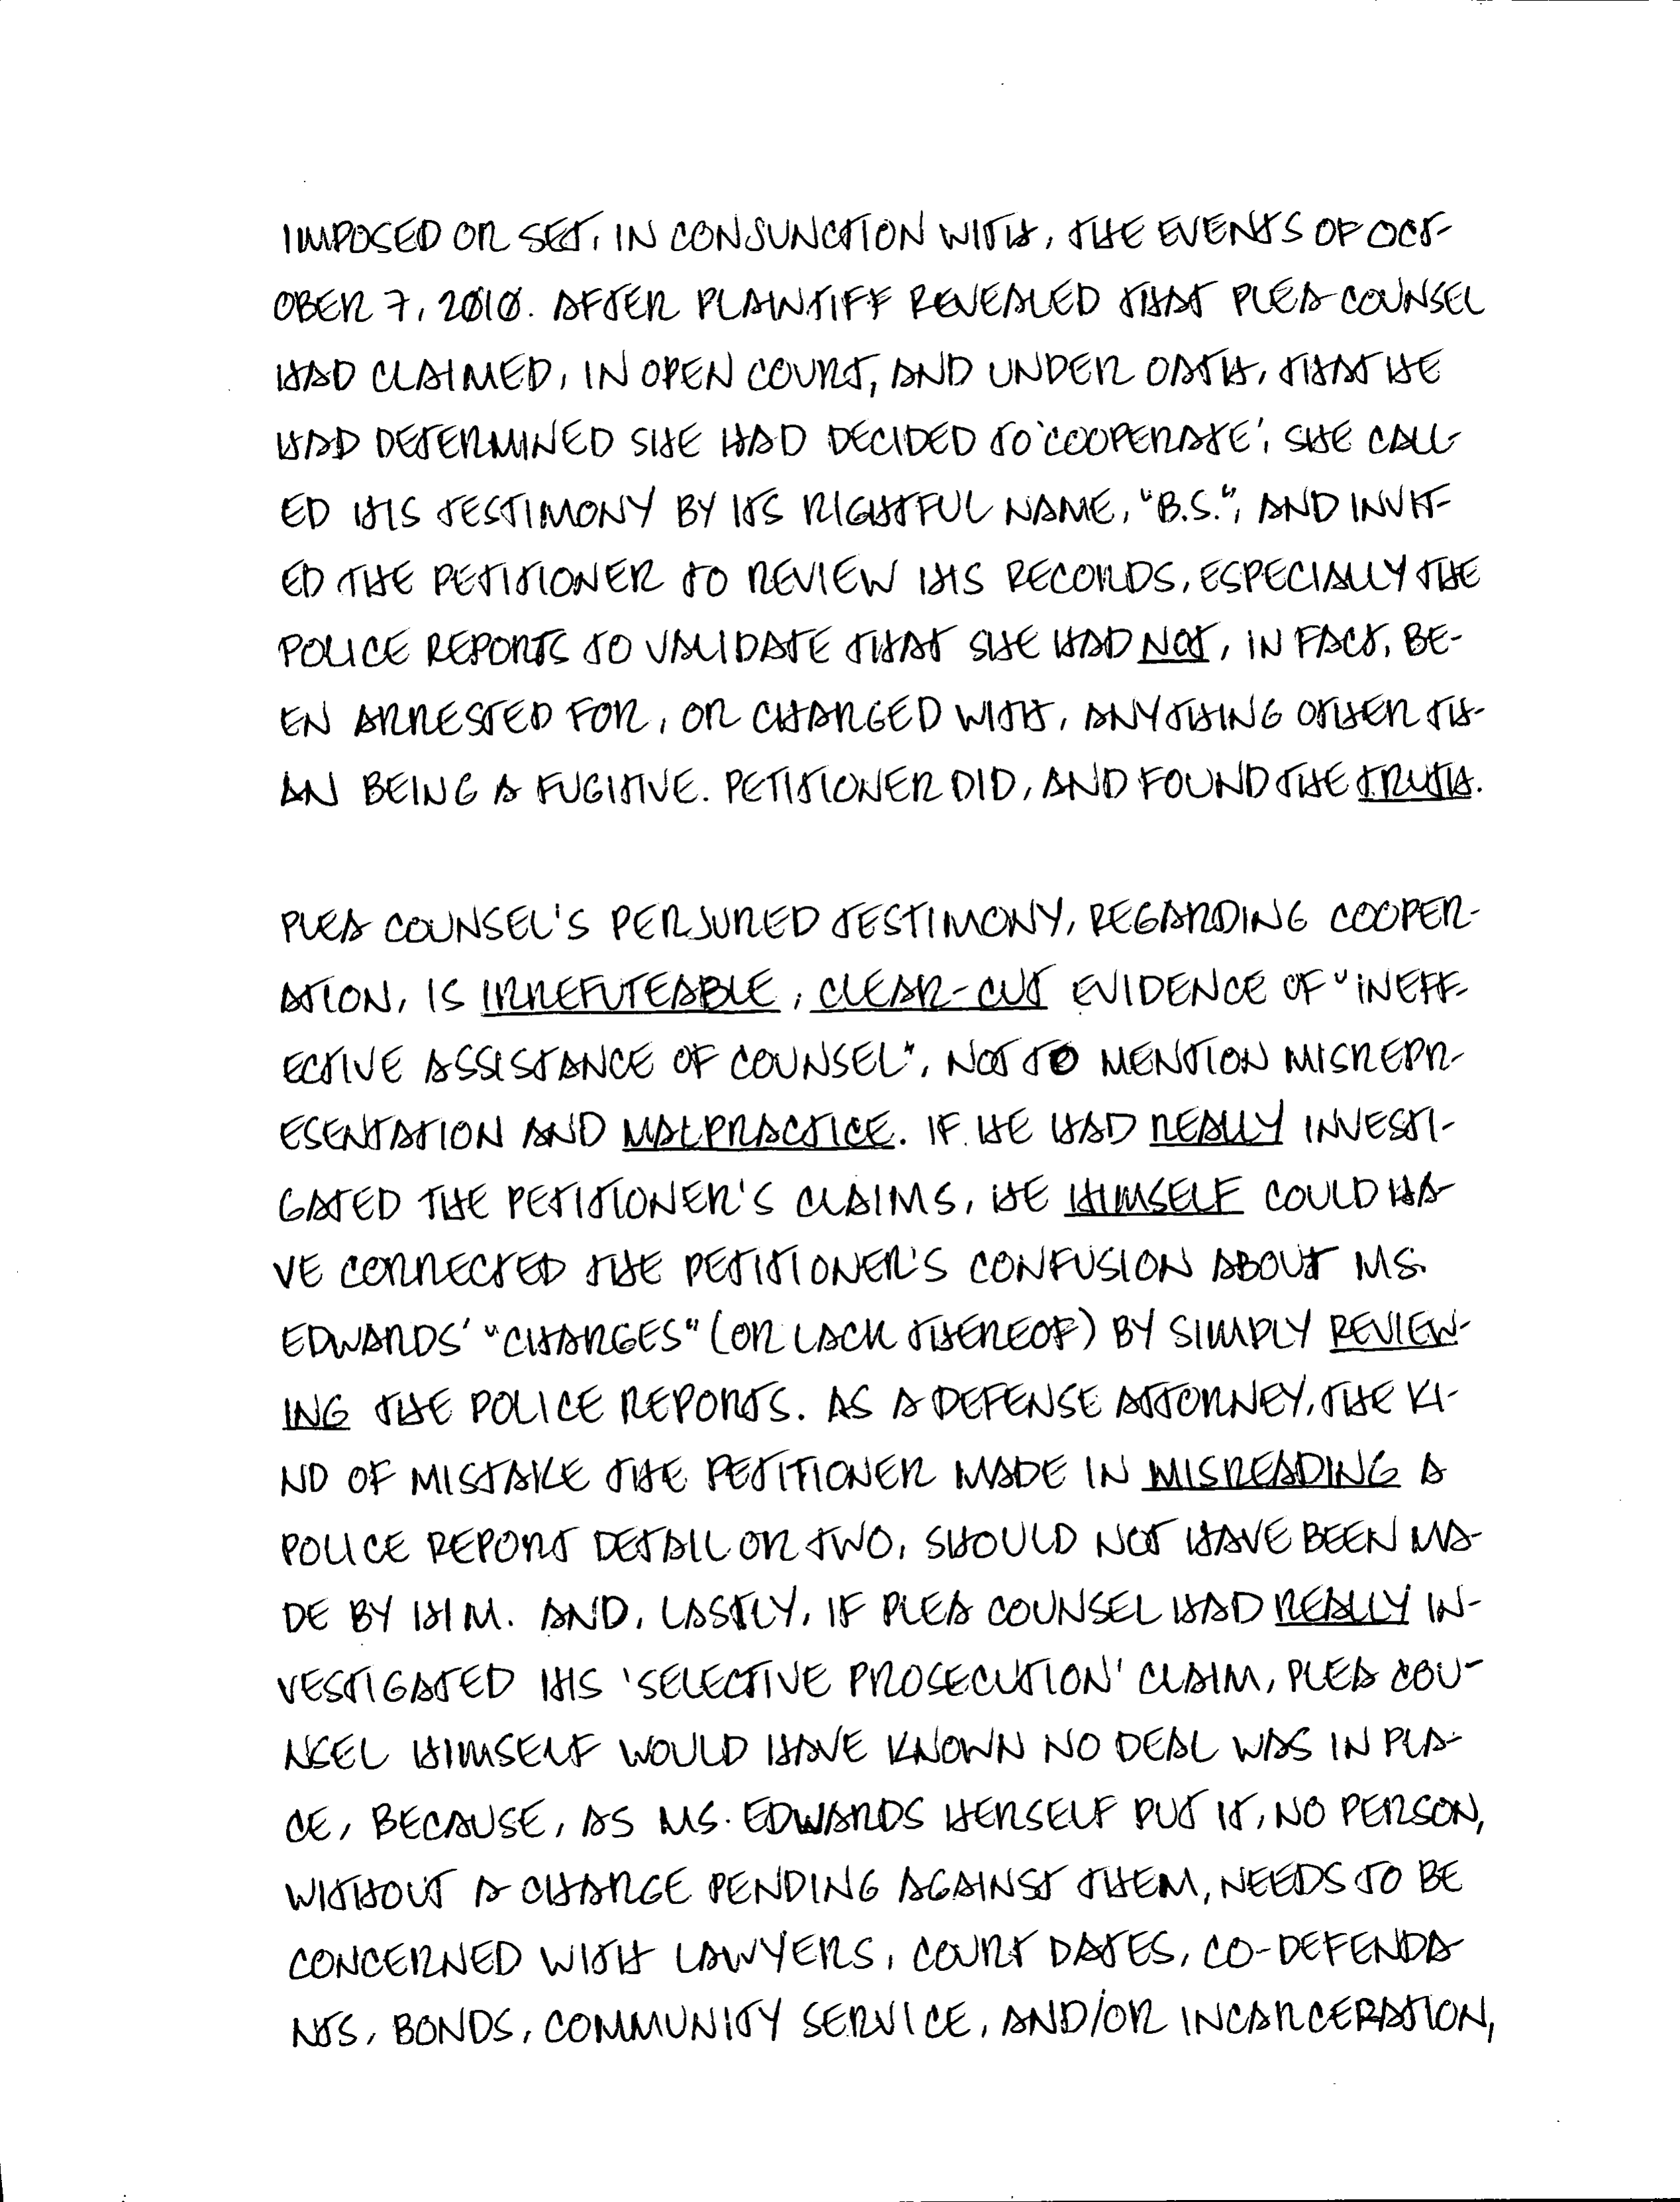 IMPOSED OR SET, IN CONJUNCTION WITH, THE EVENTS OF OCT-
OBER 7, 2010. AFTER PLAINTIFF REVEALED THAT PLEA COUNSEL
HAD CLAIMED, IN OPEN COURT, AND UNDER OATH, THAT HE
HAD DETERMINED SHE HAD DECIDED TO 'COOPERATE', SHE CALL-
ED HIS TESTIMONY BY ITS RIGHTFUL NAME, "B.S.", AND INVIT-
ED THE PETITIONER TO REVIEW HIS RECORDS, ESPECIALLY THE
POLICE REPORTS TO VALIDATE THAT SHE HAD NOT, IN FACT, BE-
EN ARRESTED FOR, OR CHARGED WITH, ANYTHING OTHER TH-
AN BEING A FUGITIVE. PETITIONER DID, AND FOUND THE TRUTH.
PLEA COUNSEL'S PERJURED TESTIMONY, REGARDING COOPER-
ATION, IS IRREFUTEABLE, CLEAR-CUT EVIDENCE OF "INEFF-
ECTIVE ASSISTANCE OF COUNSEL", NOT TO MENTION MISREPR-
ESENTATION AND MALPRACTICE. IF HE HAD REALLY INVESTI-
GATED THE PETITIONER'S CLAIMS, HE HIMSELF COULD HA-
VE CORRECTED THE PETITIONER'S CONFUSION ABOUT MS.
EDWARDS' "CHARGES" (OR LACK THEREOF) BY SIMPLY REVIEW-
ING THE POLICE REPORTS. AS A DEFENSE ATTORNEY, THE KI-
ND OF MISTAKE THE PETITIONER MADE IN MISREADING A
POLICE REPORT DETAIL OR TWO, SHOULD NOT HAVE BEEN MA-
DE BY HIM. AND, LASTLY, IF PLEA COUNSEL HAD REALLY IN-
VESTIGATED HIS 'SELECTIVE PROSECUTION' CLAIM, PLEA COU-
NSEL HIMSELF WOULD HAVE KNOWN NO DEAL WAS IN PLA-
CE, BECAUSE, AS MS. EDWARDS HERSELF PUT IT, NO PERSON,
WITHOUT A CHARGE PENDING AGAINST THEM, NEEDS TO BE
CONCERNED WITH LAWYERS, COURT DATES, CO-DEFENDA-
NTS, BONDS, COMMUNITY SERVICE, AND/OR INCARCERATION,